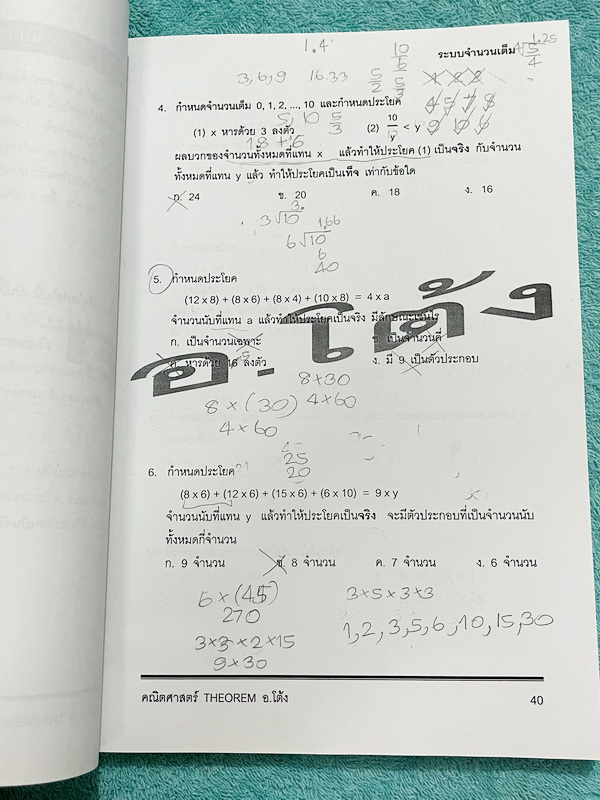 1.4
ระบบจำนวนเต็ม
1.25
5/4
10/6
3,6,9 16.33 5/2 5/3
4. กำหนดจำนวนเต็ม 0, 1, 2, ..., 10 และกำหนดประโยค
5, 10 5/3
(1) x หารด้วย 3 ลงตัว (2) 10/y < y
18 + 6
ผลบวกของจำนวนทั้งหมดที่แทน x แล้วทำให้ประโยค (1) เป็นจริง กับจำนวน
ทั้งหมดที่แทน y แล้ว ทำให้ประโยคเป็นเท็จ เท่ากับข้อใด
ก. 24 ข. 20 ค. 18 ง. 16
3.
3√10 1.66
6√10
6
40
5. กำหนดประโยค
(12 x 8) + (8 x 6) + (8 x 4) + (10 x 8) = 4 x a
จำนวนนับที่แทน a แล้วทำให้ประโยคเป็นจริง มีลักษณะเช่นไร
ก. เป็นจำนวนเฉพาะ ข. เป็นจำนวนคี่
ค. หารด้วย 16 ลงตัว ง. มี 9 เป็นตัวประกอบ
อ.โต้ง
8 x 30
8 x (30) 4 x 60
4 x 60
25
20
6. กำหนดประโยค
(8 x 6) + (12 x 6) + (15 x 6) + (6 x 10) = 9 x y
จำนวนนับที่แทน y แล้วทำให้ประโยคเป็นจริง จะมีตัวประกอบที่เป็นจำนวนนับ
ทั้งหมดกี่จำนวน
ก. 9 จำนวน ข. 8 จำนวน ค. 7 จำนวน ง. 6 จำนวน
6 x (45) 3 x 5 x 3 x 3
270
1,2,3,5,6,10,15,30
3 x 3 x 2 x 15
9 x 30
คณิตศาสตร์ THEOREM อ.โต้ง 40